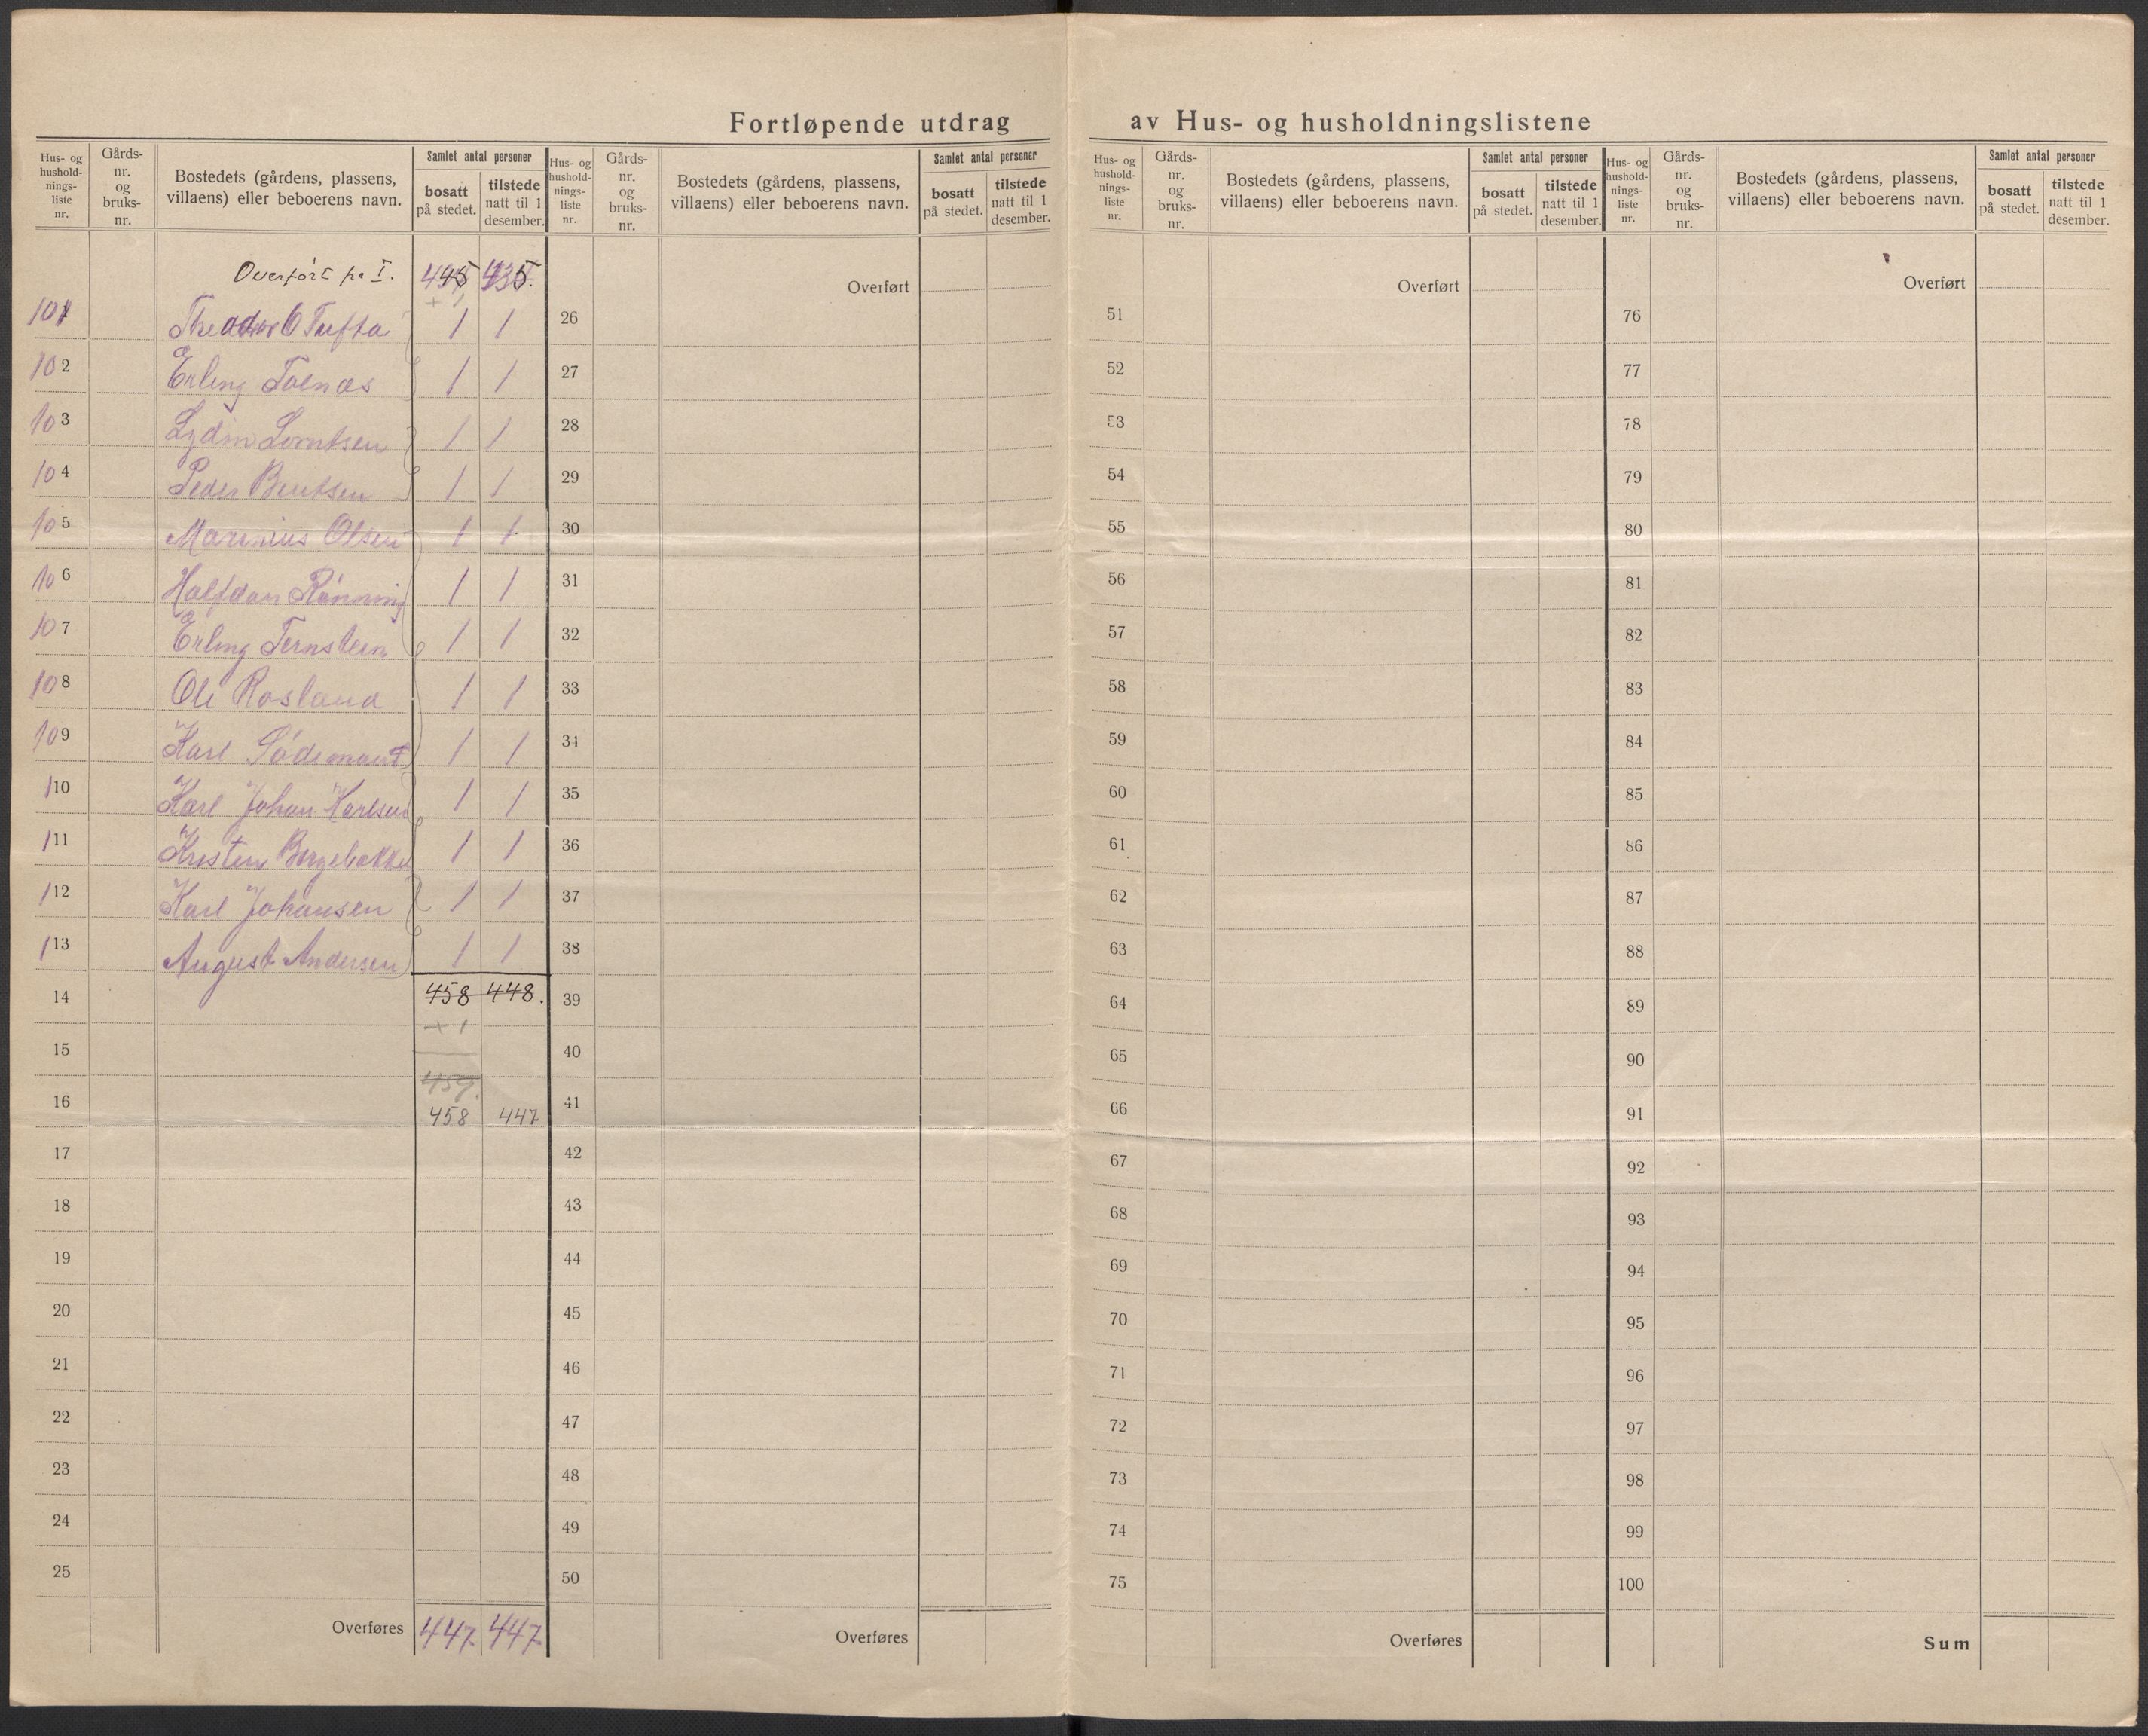 Fortløpende utdrag av Hus- og husholdningslistene
Hus- og hushold-nings-liste nr.
Gårds-nr. og bruks-nr.
Bostedets (gårdens, plassens, villaens) eller beboerens navn.
Samlet antal personer
bosatt på stedet.
tilstede natt til 1 desember.
Hus- og hushold-nings-liste nr.
Gårds-nr. og bruks-nr.
Bostedets (gårdens, plassens, villaens) eller beboerens navn.
Samlet antal personer
bosatt på stedet.
tilstede natt til 1 desember.
Hus- og hushold-nings-liste nr.
Gårds-nr. og bruks-nr.
Bostedets (gårdens, plassens, villaens) eller beboerens navn.
Samlet antal personer
bosatt på stedet.
tilstede natt til 1 desember.
Hus- og hushold-nings-liste nr.
Gårds-nr. og bruks-nr.
Bostedets (gårdens, plassens, villaens) eller beboerens navn.
Samlet antal personer
bosatt på stedet.
tilstede natt til 1 desember.
Overført I. 445 435.
101 Theodor O Tufta 1 1
102 Erling 1 1
103 1 1
104 Peder Bentsen 1 1
105 Marinius Olsen 1 1
106 Halfdan Rønning 1 1
107 Erling Ternstein 1 1
108 Ole Rosland 1 1
109 Karl 1 1
110 Karl Johan Karlsen 1 1
111 1 1
112 Karl Johansen 1 1
113 August Andersen 1 1
14 458 448.
+ 1
15
459.
16 458 447
17
18
19
20
21
22
23
24
25
Overføres 447 447
Overført
26
27
28
29
30
31
32
33
34
35
36
37
38
39
40
41
42
43
44
45
46
47
48
49
50
Overføres
Overført
51
52
53
54
55
56
57
58
59
60
61
62
63
64
65
66
67
68
69
70
71
72
73
74
75
Overføres
Overført
76
77
78
79
80
81
82
83
84
85
86
87
88
89
90
91
92
93
94
95
96
97
98
99
100
Sum